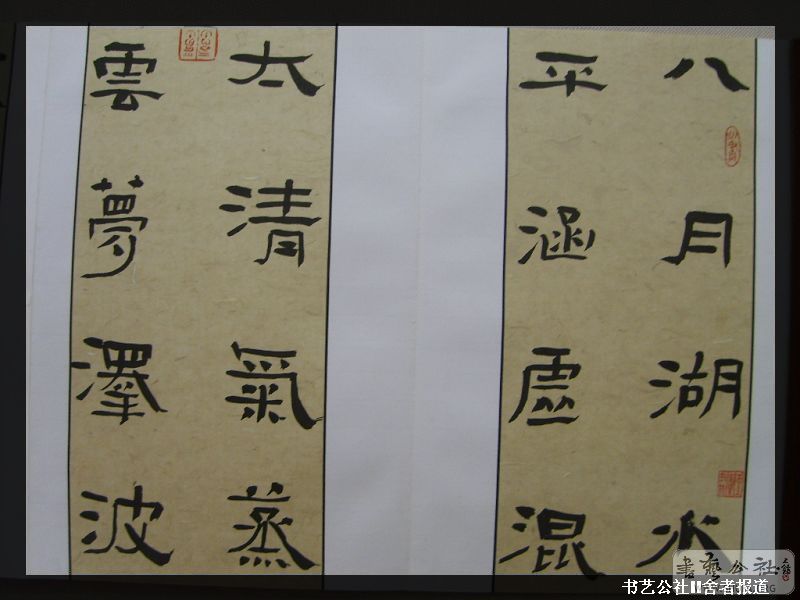 八月湖水
平涵虛混
太清氣蒸
雲夢澤波
書藝公社
书艺公社II舍者报道